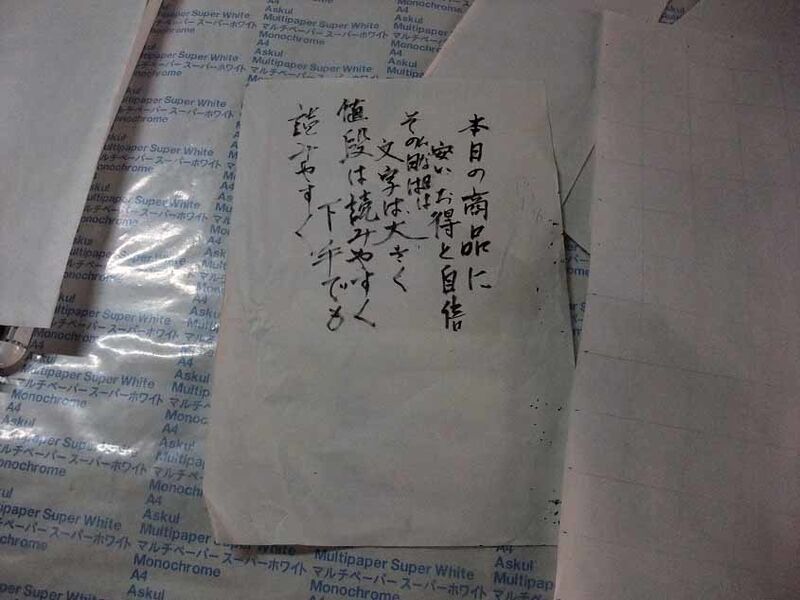 本日の商品に
安いお得と自信
その
文字は大きく
値段は読みやすく
下手でも
読みやすく
Multipaper Super White
マルチペーパー スーパーホワイト
Monochrome
A4
Askul